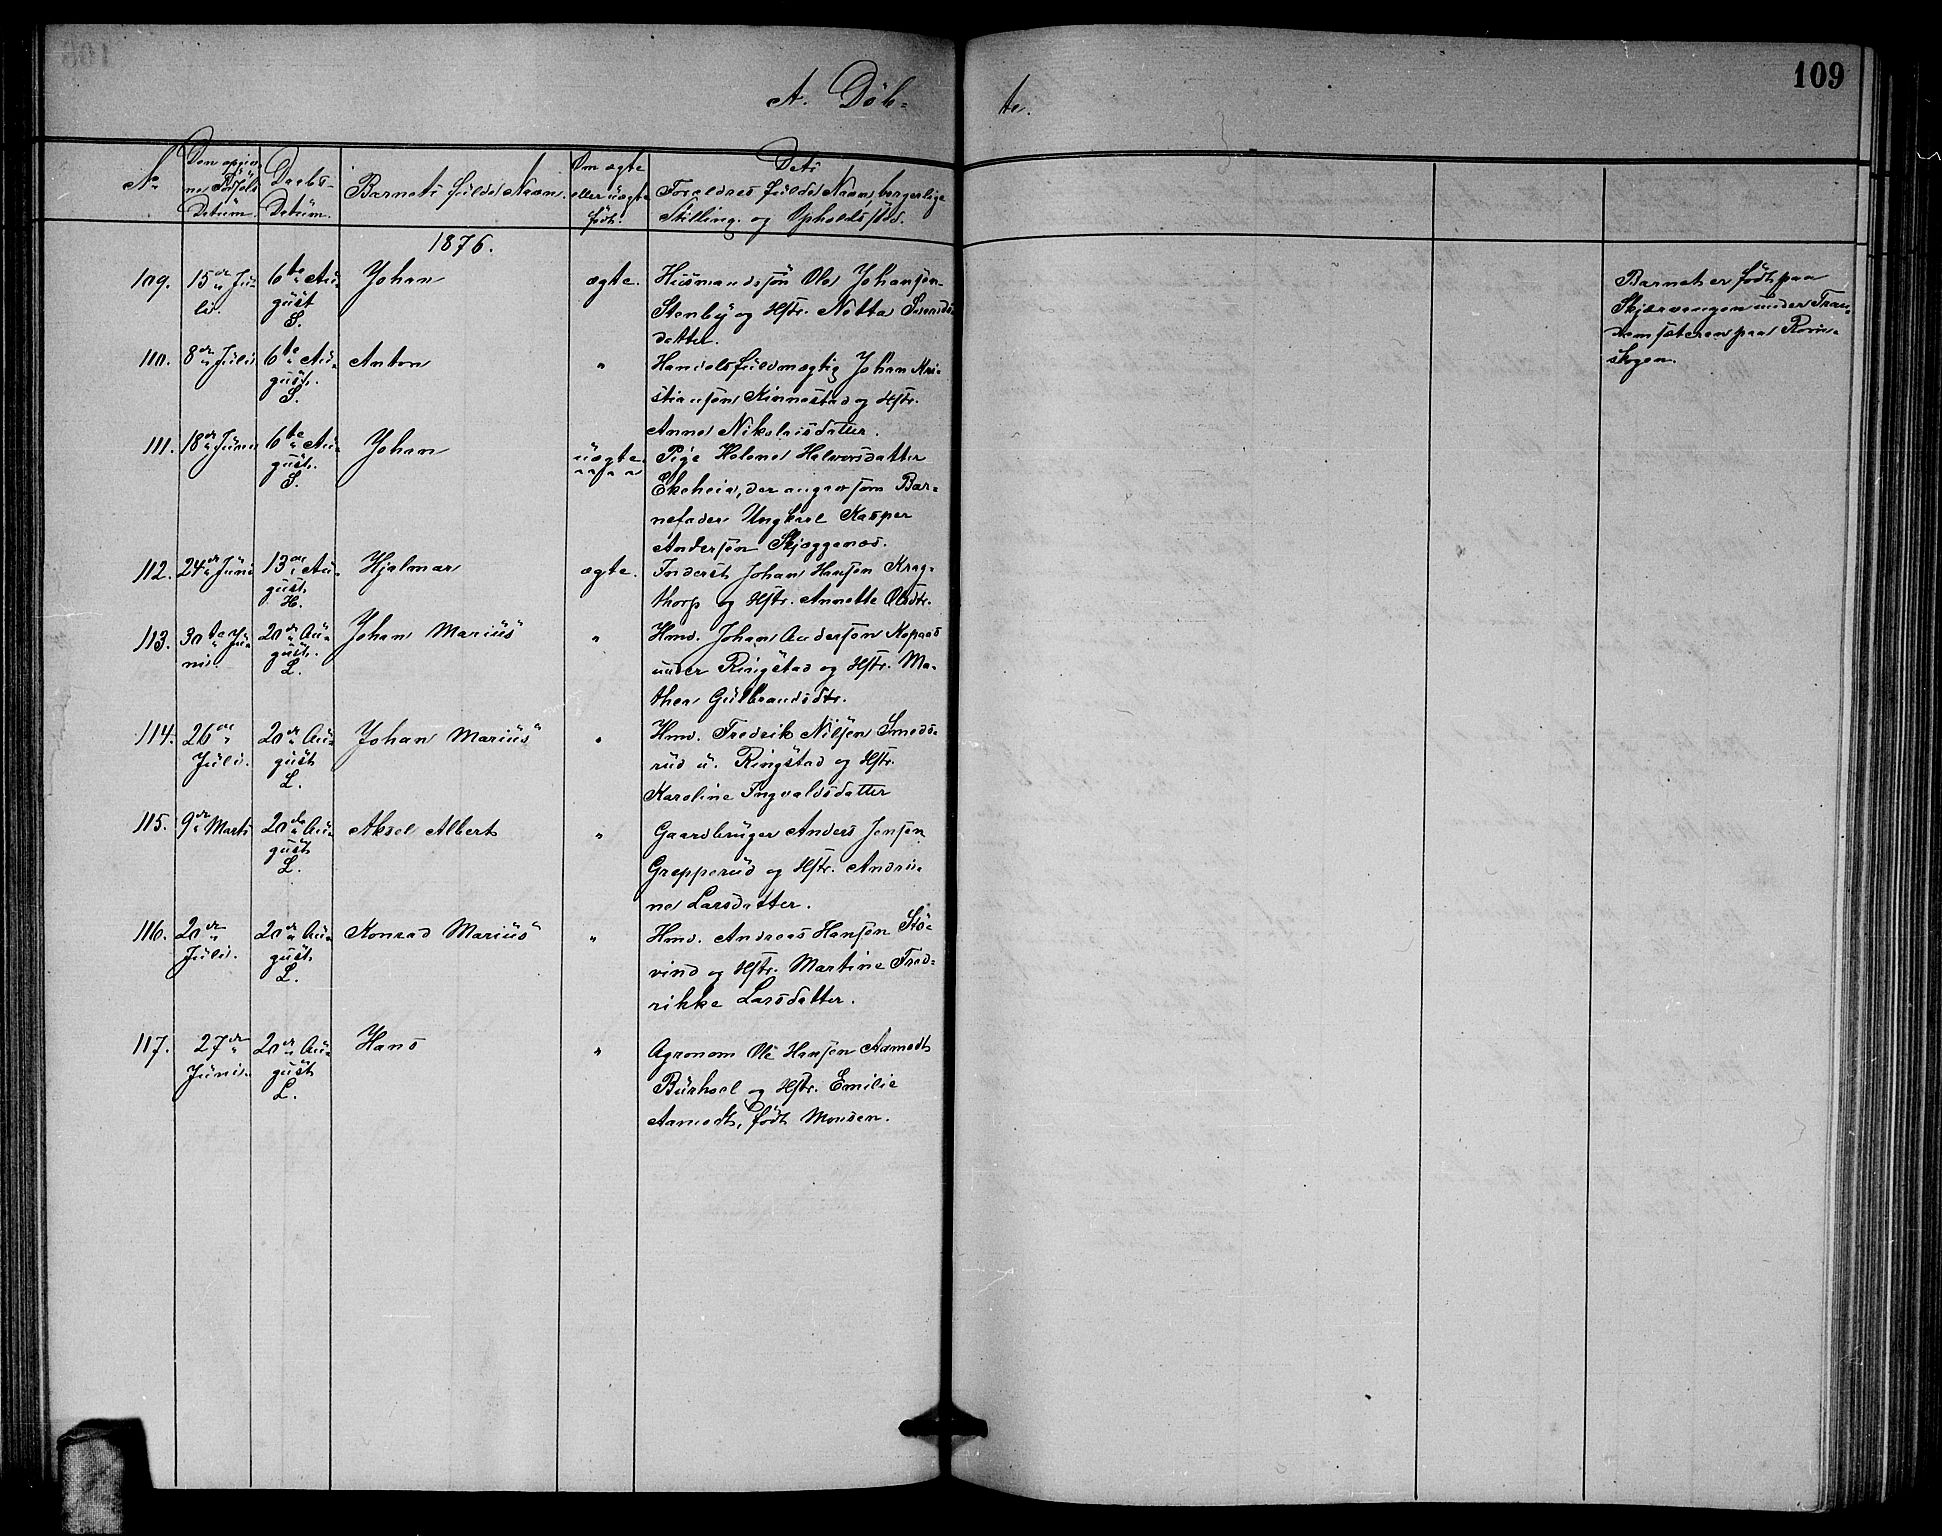 109
A. Døb-
te.
No
Den opgiv-
ne Fødsels
Datum.
Daabs-
Datum.
Barnets fulde Navn.
Om ægte
eller uægte
født.
Dets
Forældres fulde Navn, borgerlige
Stilling og Opholdssted.
1876.
109. 15de Ju-
li.
6te Au-
gust
S.
Johan
ægte.
Husmandssøn Ole Johansen
Stenby og Hstr. Netta
datter.
Barnet er født paa
Skjærvangen under Tran-
demsæteren paa Rom-
skogen.
110. 8de Juli
6te Au-
gust.
S.
Anton
"
Handelsfuldmægtig Johan Kri-
stiansen Kinnestad og Hstr.
Anne Nikolaisdatter.
111. 18de Juni
6te Au-
gust.
S.
Johan
uægte.
Pige Helene Halvorsdatter
Ekeheia, der angav som Bar-
nefader Ungkarl Kasper
Andersen Skjæggenæs.
112. 24de Juni
13de Au-
gust.
H.
Hjalmar
ægte.
Inderst Johan Hansen Krag-
thorp og Hstr. Annette Olsdtr.
113. 30te Ju-
ni.
20de Au-
gust.
L.
Johan Marius
"
Hmd. Johan Andersen Kopaas
under Ringstad og Hstr. Ma-
thea Gulbrandsdtr.
114. 26de
Juli.
20de Au-
gust
L.
Johan Marius
"
Hmd. Fredrik Nilsen Smeds-
rud u. Ringstad og Hstr.
Karoline Ingvaldsdatter
115. 9de Marts
20de Au-
gust
L.
Aksel Albert
"
Gaardbruger Anders Jensen
Grepperud og Hstr. Andri-
ne Larsdatter.
116. 20de
Juli.
20de Au-
gust.
L.
Konrad Marius
"
Hmd. Andreas Hansen Skø-
vind og Hstr. Martine Fred-
rikke Larsdatter.
117. 27de
Juni.
20de Au-
gust
L.
Hans
"
Agronom Ole Hansen Aamodt
Burhol og Hstr. Emilie
Aamodt, født Monsen.